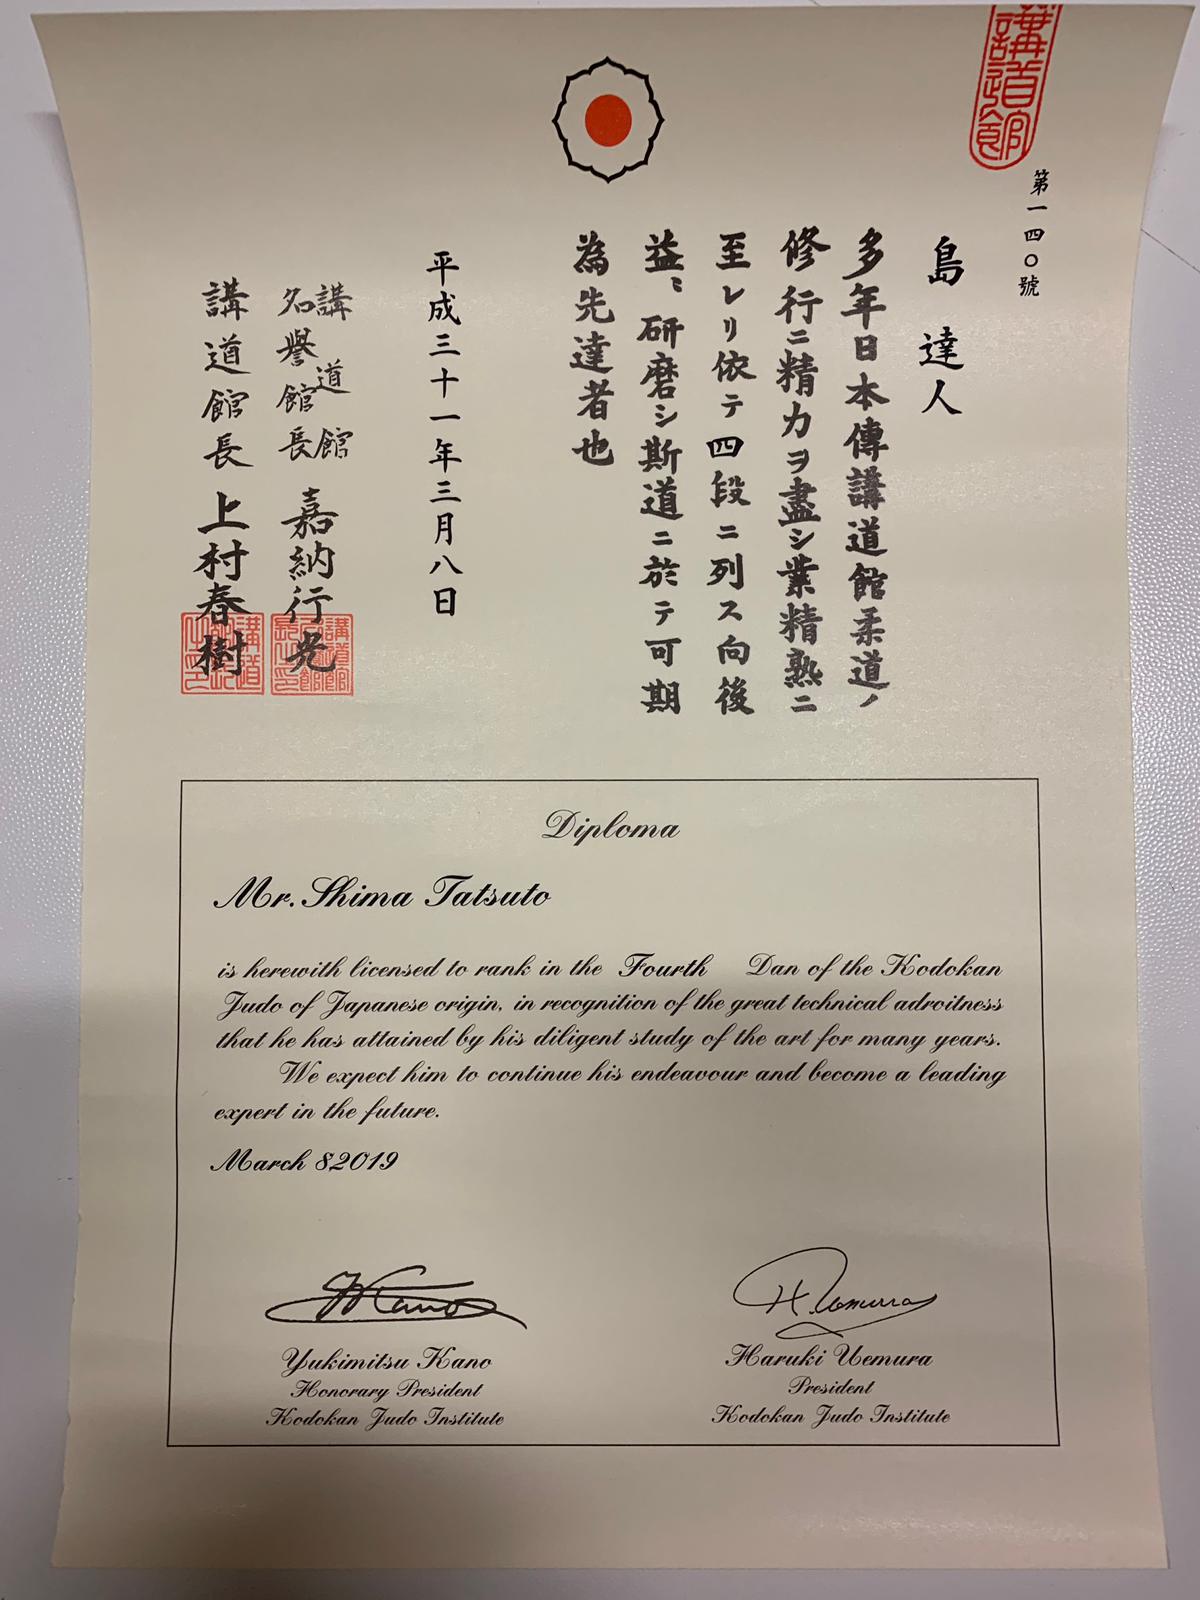 講道館
第一四〇號
島 達人
多年日本傳講道館柔道ノ
修行ニ精力ヲ盡シ業精熟ニ
至レリ依テ四段ニ列ス向後
益〻研磨シ斯道ニ於テ可期
為先達者也
平成三十一年三月八日
講道館
名譽館長 嘉納行光
講道館長 上村春樹
Diploma
Mr. Shima Tatsuto
is herewith licensed to rank in the Fourth Dan of the Kodokan
Judo of Japanese origin, in recognition of the great technical adroitness
that he has attained by his diligent study of the art for many years.
We expect him to continue his endeavour and become a leading
expert in the future.
March 82019
Y Kano
H. Uemura
Yukimitsu Kano
Honorary President
Kodokan Judo Institute
Haruki Uemura
President
Kodokan Judo Institute